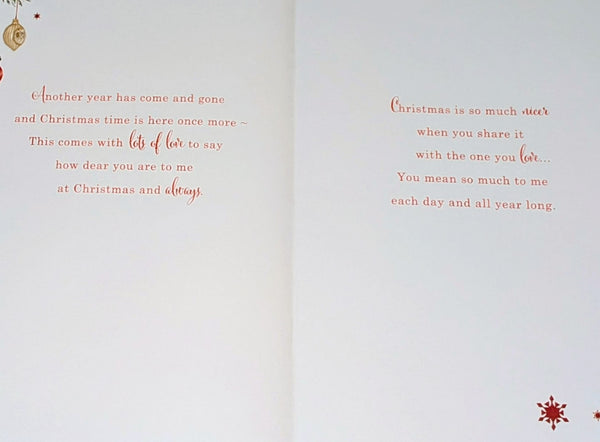 Another year has come and gone
and Christmas time is here once more ~
This comes with lots of love to say
how dear you are to me
at Christmas and always.
Christmas is so much nicer
when you share it
with the one you love...
You mean so much to me
each day and all year long.